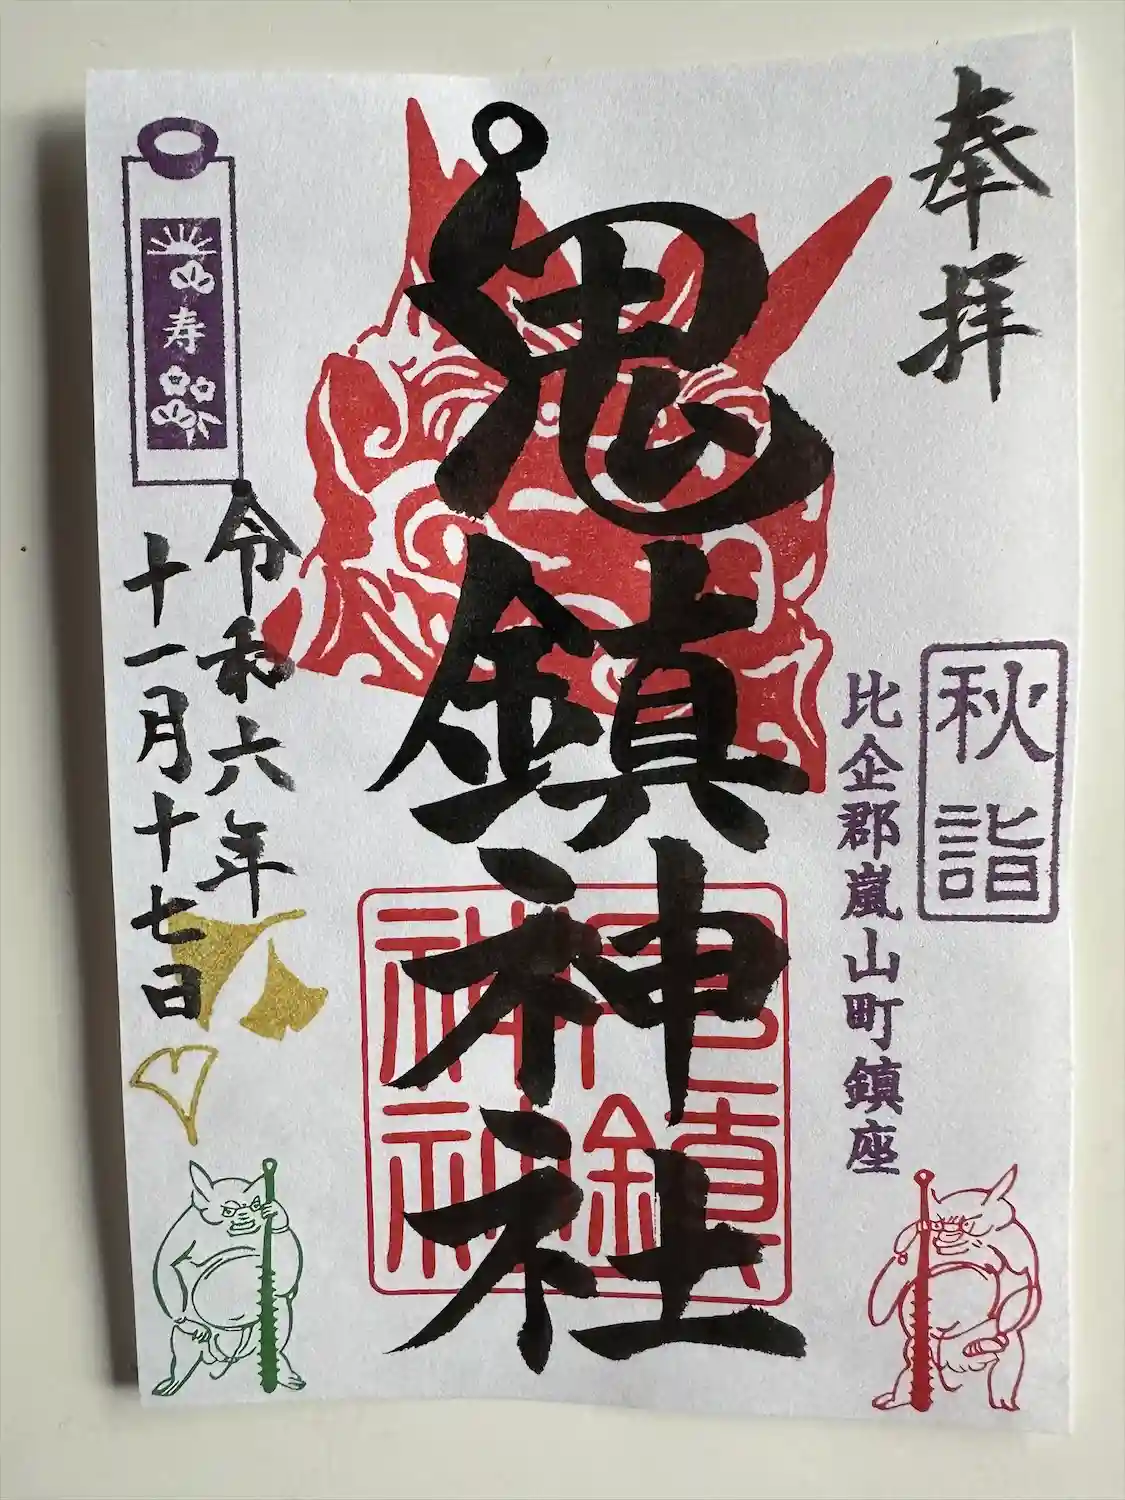 奉拝
秋詣
比企郡嵐山町鎮座
鬼鎮神社
鬼鎮
神社
寿
令和六年
十一月十七日